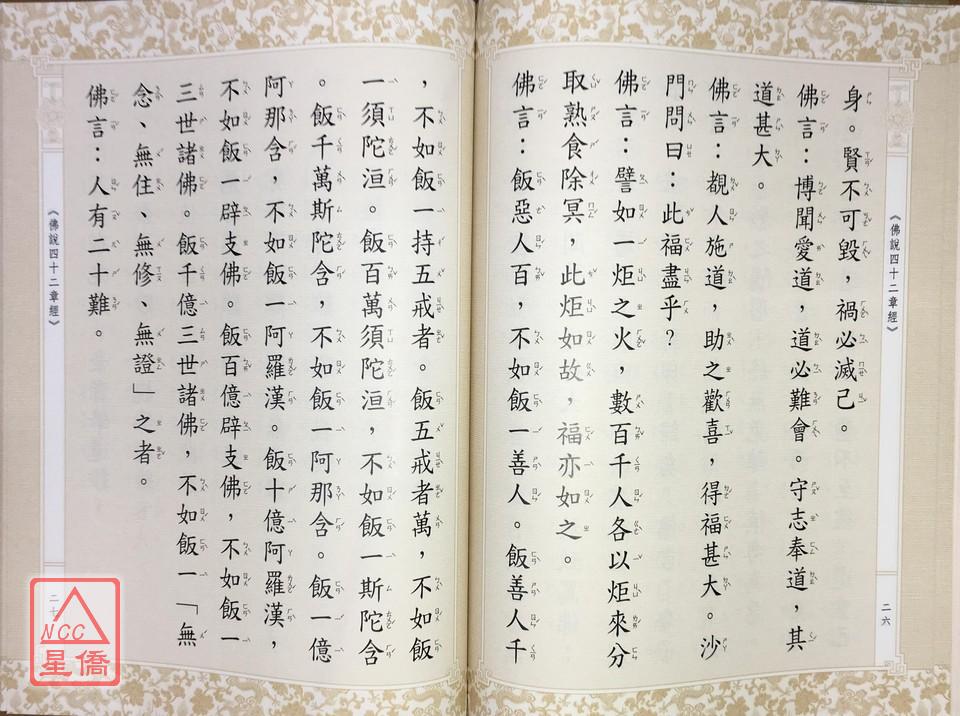 身。賢不可毀，禍必滅己。
佛言：博聞愛道，道必難會。守志奉道，其
道甚大。
佛言：覩人施道，助之歡喜，得福甚大。沙
門問曰：此福盡乎？
佛言：譬如一炬之火，數百千人各以炬來分
取熟食除冥，此炬如故，福亦如之。
佛言：飯惡人百，不如飯一善人。飯善人千
《佛說四十二章經》
二六
，不如飯一持五戒者。飯五戒者萬，不如飯
一須陀洹。飯百萬須陀洹，不如飯一斯陀含
。飯千萬斯陀含，不如飯一阿那含。飯一億
阿那含，不如飯一阿羅漢。飯十億阿羅漢，
不如飯一辟支佛。飯百億辟支佛，不如飯一
三世諸佛。飯千億三世諸佛，不如飯一「無
念、無住、無修、無證」之者。
佛言：人有二十難。
《佛說四十二章經》
二七
NCC
星僑